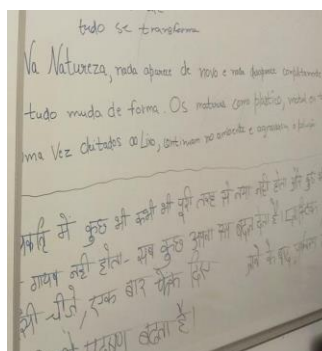 tudo se transforma
Na Natureza, nada aparece de novo e nada desaparece completamente
tudo muda de forma. Os materiais como plástico, metal
uma Vez deitados ao Lixo, continuam no ambiente e agravam a poluição
प्रकृति में कुछ भी कभी भी पूरी तरह से नया नहीं होता और कुछ भी
गायब नहीं होता - सब कुछ अपना रूप बदल देता है। प्लास्टिक
चीजें, एक बार फेंक दिए जाने के बाद,
प्रदूषण बढ़ता है।